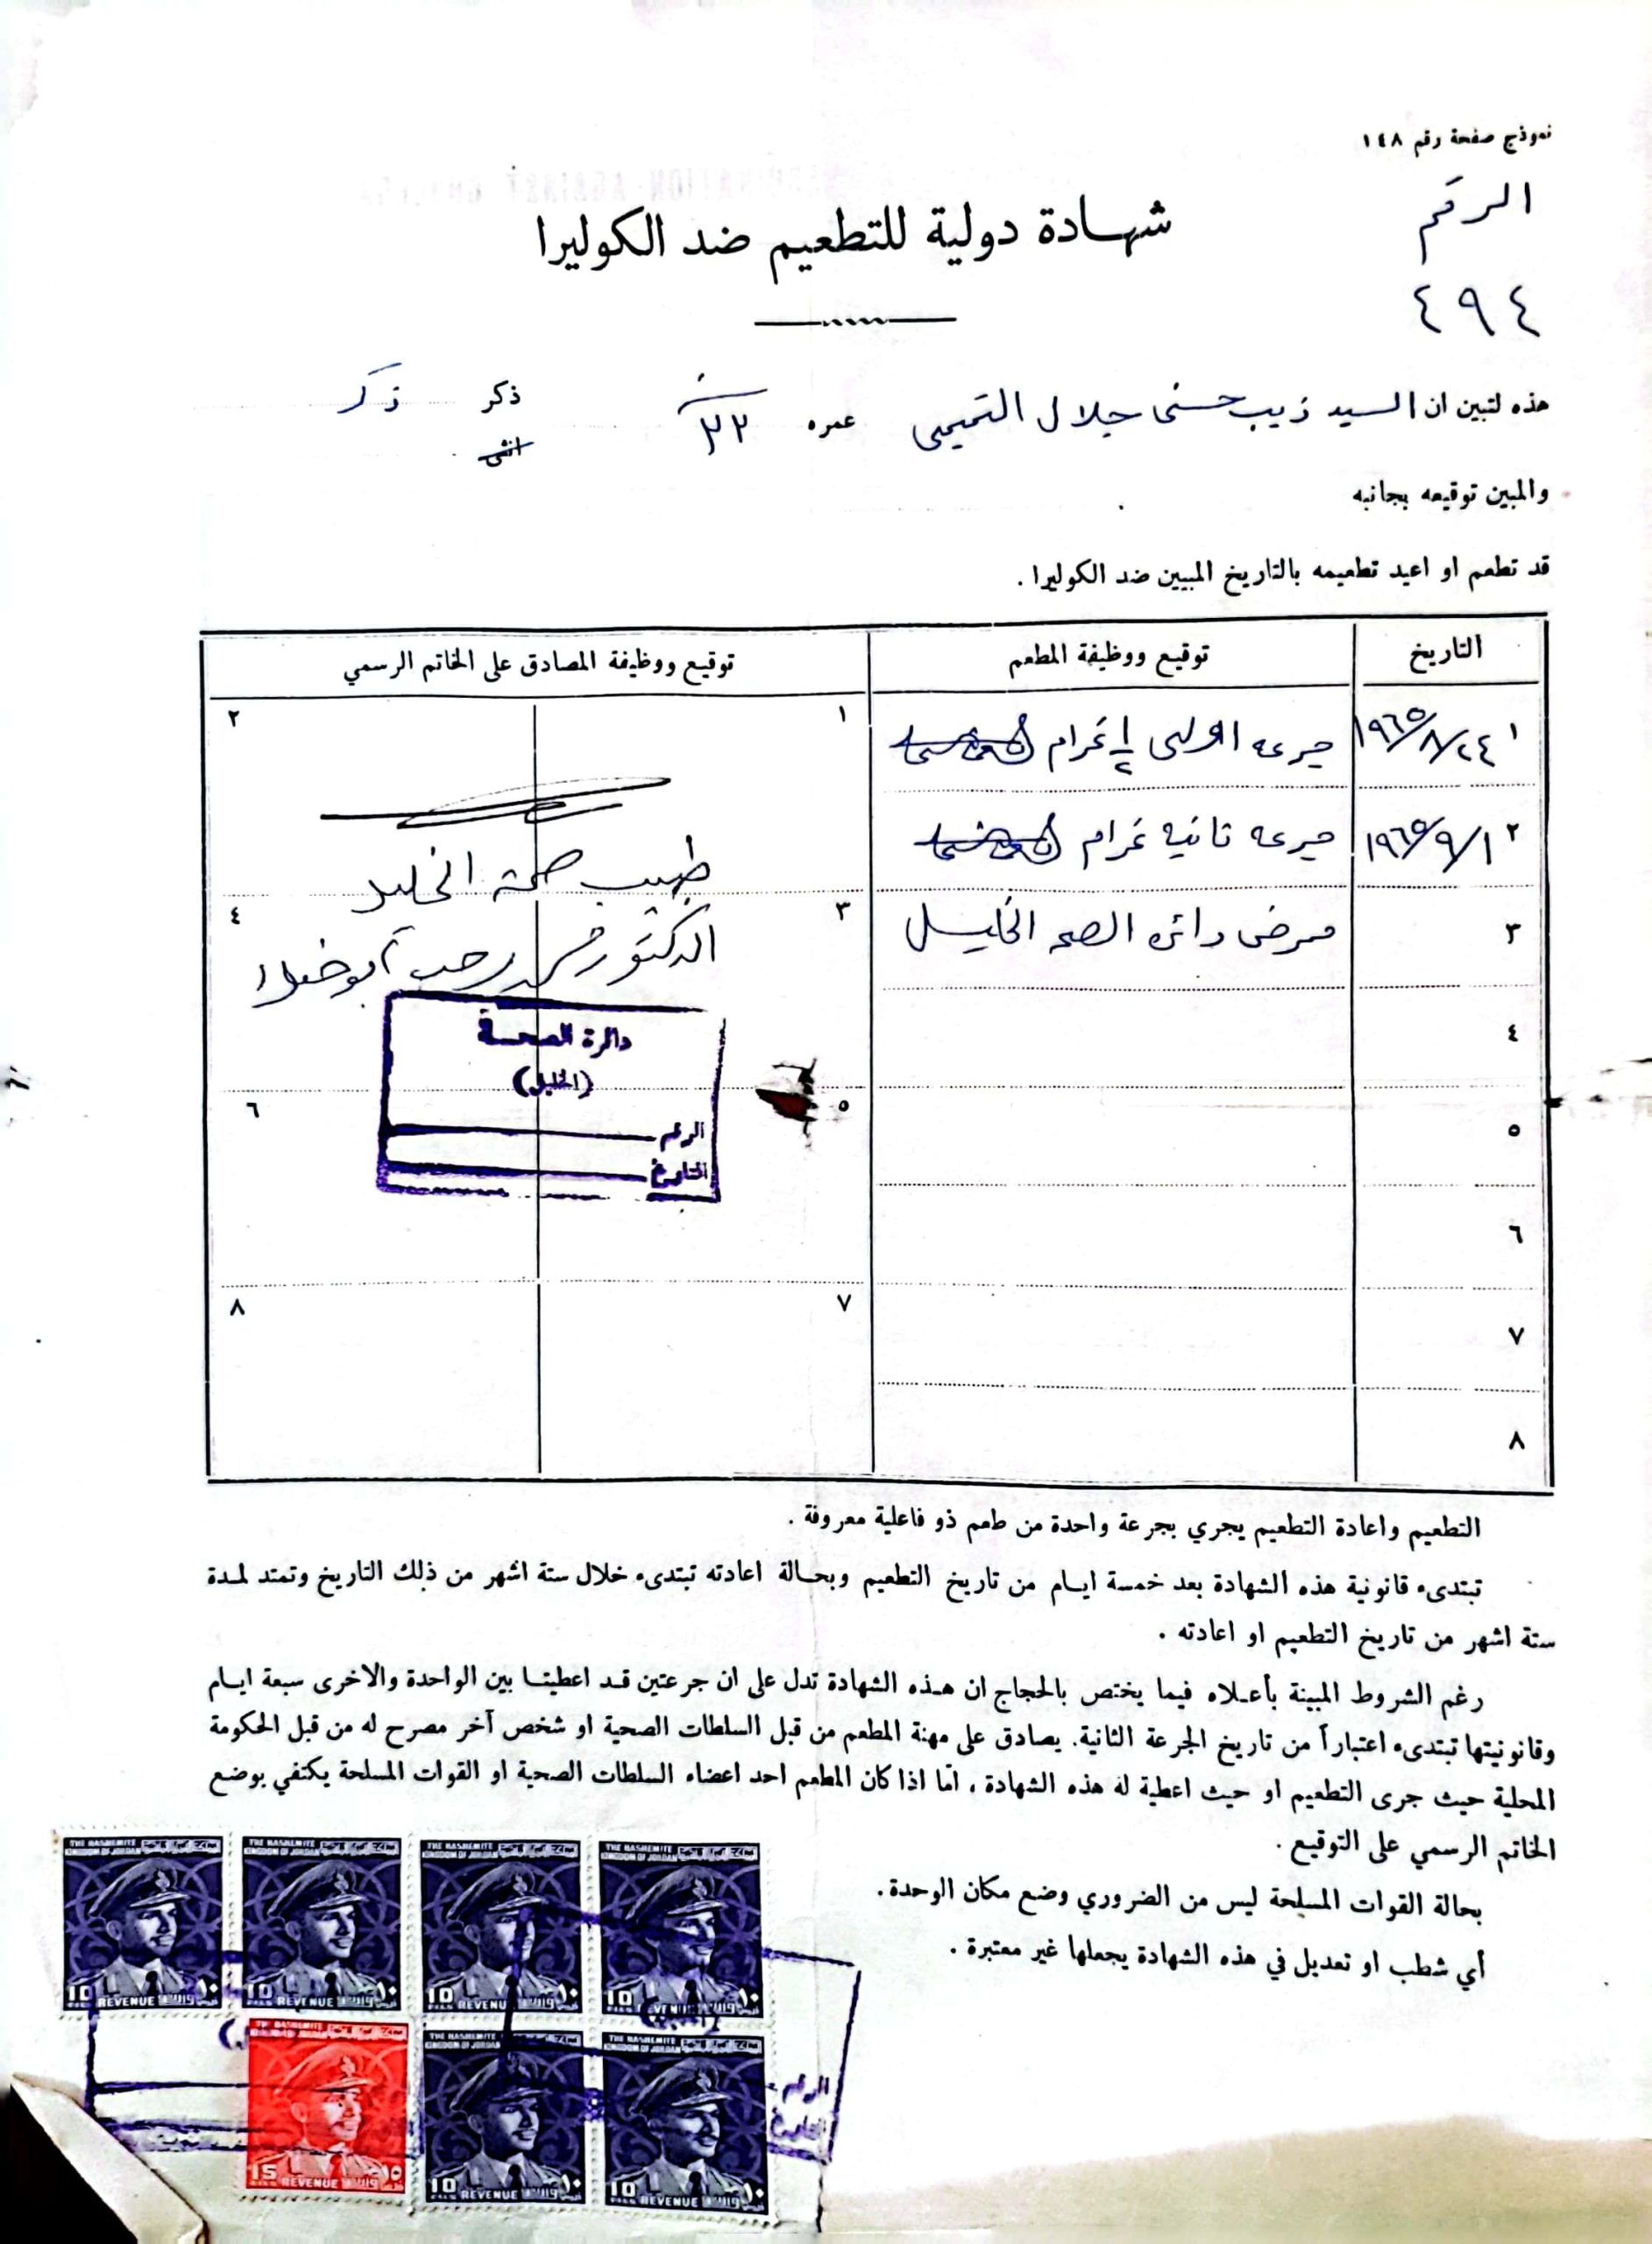 نموذج صفحة رقم ١٤٨
الرقم
٤٩٤
شهادة دولية للتطعيم ضد الكوليرا
هذه لتبين ان السيد ذيب حسني جلال التميمي عمره ٢٢ سنة ذكر ذكر
انثى
والمبين توقيعه بجانبه
قد تطعم او اعيد تطعيمه بالتاريخ المبيين ضد الكوليرا .
التاريخ توقيع ووظيفة المطعم توقيع ووظيفة المصادق على الخاتم الرسمي
١ ١٩٦٥/٨/٢٤ جرعه اولى ١/٢ غرام ١ ٢
٢ ١٩٦٥/٩/١ جرعه ثانيه غرام
طبيب صحة الخليل
٣ ممرض دائره الصحه الخليل ٣ ٤
الدكتور رجب
دائرة الصحة
(الخليل)
الرقم
التاريخ
٤
٥ ٥ ٦
٦
٧ ٧ ٨
٨
التطعيم واعادة التطعيم يجري بجرعة واحدة من طعم ذو فاعلية معروفة .
تبتدىء قانونية هذه الشهادة بعد خمسة ايام من تاريخ التطعيم وبحالة اعادته تبتدىء خلال ستة اشهر من ذلك التاريخ وتمتد لمدة
ستة اشهر من تاريخ التطعيم او اعادته .
رغم الشروط المبينة بأعلاه فيما يختص بالحجاج ان هذه الشهادة تدل على ان جرعتين قد اعطيتا بين الواحدة والاخرى سبعة ايام
وقانونيتها تبتدىء اعتباراً من تاريخ الجرعة الثانية. يصادق على مهنة المطعم من قبل السلطات الصحية او شخص آخر مصرح له من قبل الحكومة
المحلية حيث جرى التطعيم او حيث اعطية له هذه الشهادة ، امّا اذا كان المطعم احد اعضاء السلطات الصحية او القوات المسلحة يكتفي بوضع
الخاتم الرسمي على التوقيع .
بحالة القوات المسلحة ليس من الضروري وضع مكان الوحدة .
أي شطب او تعديل في هذه الشهادة يجعلها غير معتبرة .
THE HASHEMITE KINGDOM OF JORDAN
10 FILS REVENUE ١٠
THE HASHEMITE KINGDOM OF JORDAN
10 FILS REVENUE ١٠
THE HASHEMITE KINGDOM OF JORDAN
10 FILS REVENUE ١٠
THE HASHEMITE KINGDOM OF JORDAN
10 FILS REVENUE ١٠
15 FILS REVENUE ١٥
THE HASHEMITE KINGDOM OF JORDAN
10 FILS REVENUE ١٠
THE HASHEMITE KINGDOM OF JORDAN
10 FILS REVENUE ١٠
الرقم
التاريخ